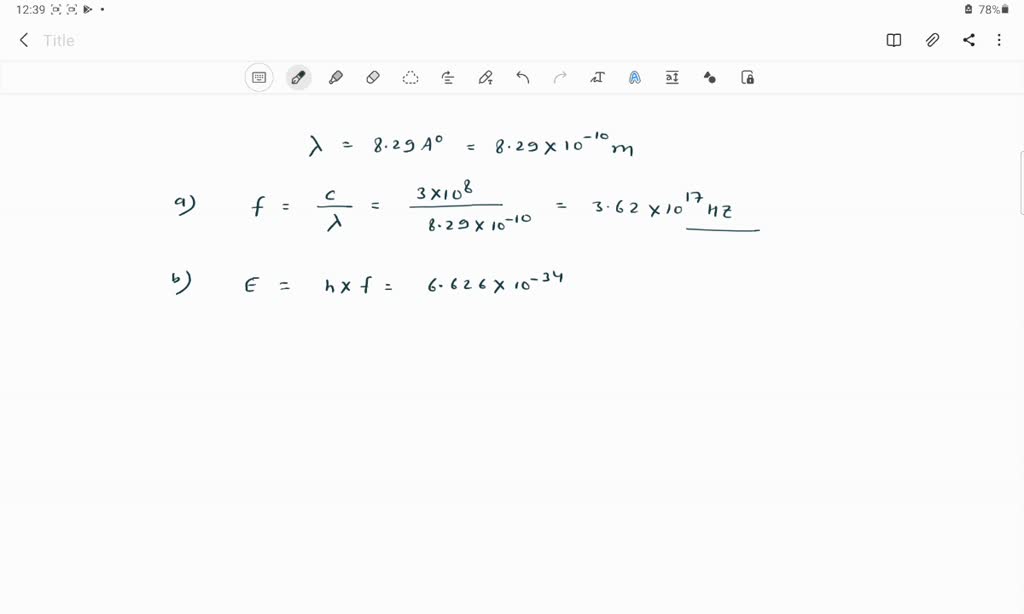 12:39
78%
Title
λ = 8.29 A° = 8.29 × 10⁻¹⁰ m
a) f = c/λ = 3×10⁸ / 8.29 × 10⁻¹⁰ = 3.62 × 10¹⁷ Hz
b) E = h × f = 6.626 × 10⁻³⁴